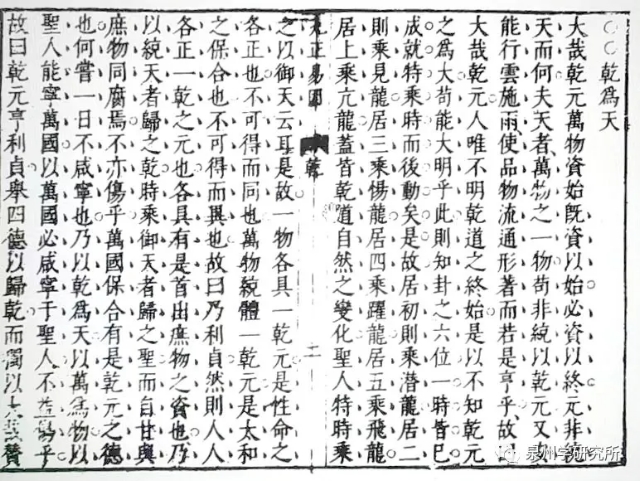 ○○乾爲天
大哉乾元萬物資始旣資以始必資以終元非統
天而何夫天者萬物之一物苟非統以乾元又
能行雲施雨使品物流通形著而若是亨乎故
大哉乾元人唯不明乾道之終始是以不知乾元
之爲大苟能大明乎此則知卦之六位一時皆已
成就特乘時而後動矣是故居初則乘潛龍居二
則乘見龍居三乘惕龍居四乘躍龍居五乘飛龍
居上乘亢龍蓋皆乾道自然之變化聖人特時乘
九正易因 乾 二
之以御天云耳是故一物各具一乾元是性命之
各正也不可得而同也萬物統體一乾元是太和
之保合也不可得而異也故曰乃利貞然則人人
各正一乾之元也各具有是首出庶物之資也乃
以統天者歸之乾時乘御天者歸之聖而自甘與
庶物同腐焉不亦傷乎萬國保合有是乾元之德
也何嘗一日不咸寧也乃以乾爲天以萬爲物以
聖人能寧萬國以萬國必咸寧于聖人不益傷乎
故曰乾元亨利貞舉四德以歸乾而獨以大哉贊
泉州学研究所